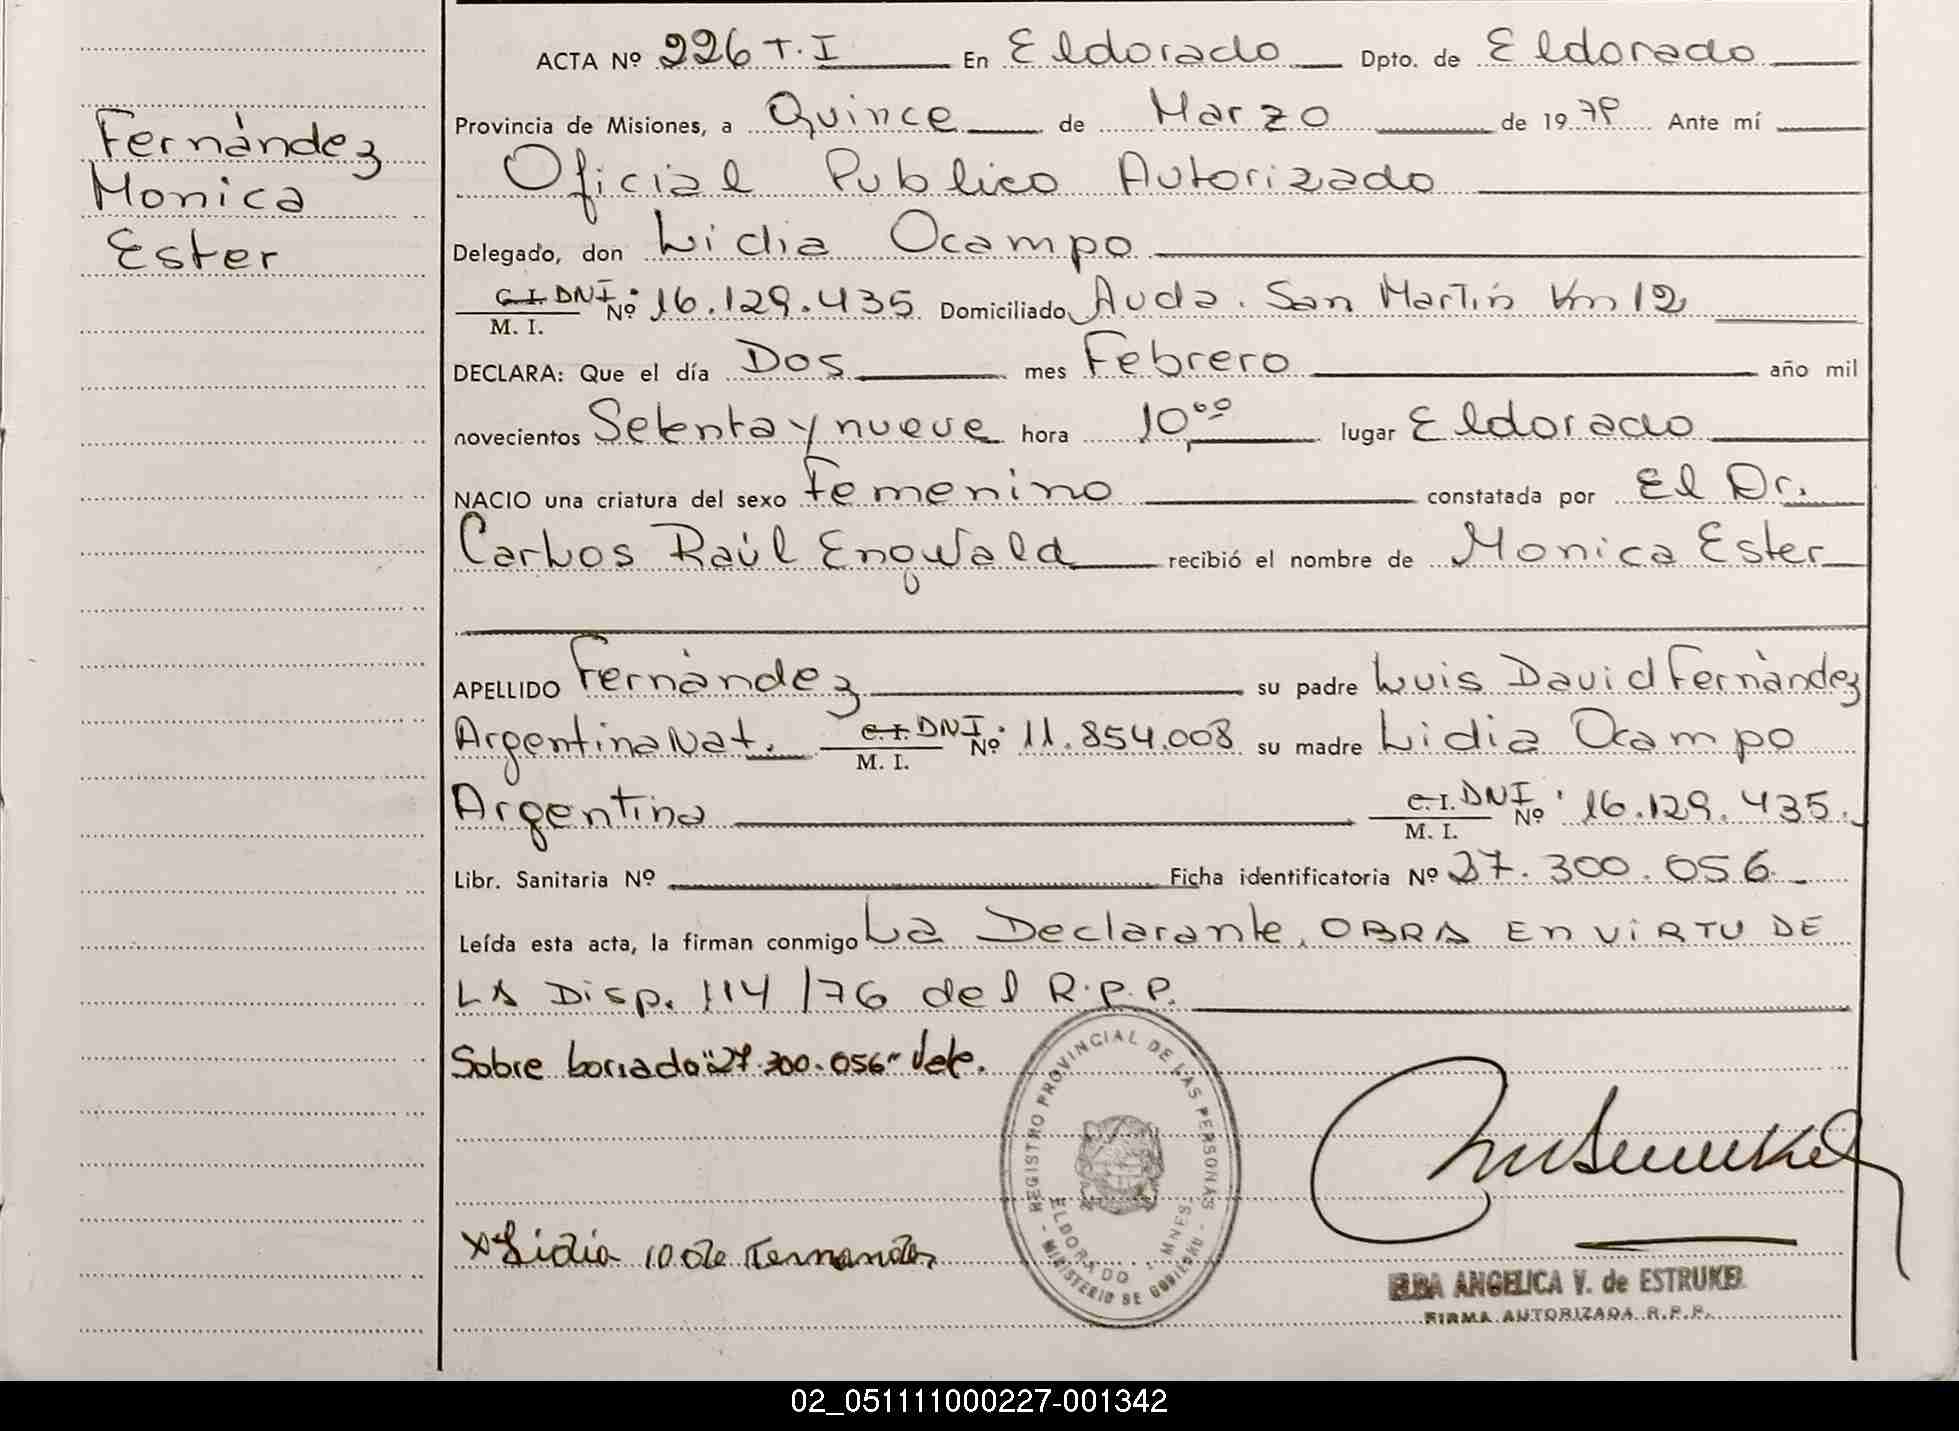 Fernández
Monica
Ester
ACTA Nº 226 T. I En Eldorado Dpto. de Eldorado
Provincia de Misiones, a Quince de Marzo de 1979 Ante mí
Oficial Publico Autorizado
Delegado, don Lidia Ocampo
C.I. DNI Nº 16.129.435 Domiciliado Avda. San Martín Km 12
M. I.
DECLARA: Que el día Dos mes Febrero año mil
novecientos Setenta y nueve hora 10,00 lugar Eldorado
NACIO una criatura del sexo Femenino constatada por El Dr.
Carlos Raúl Engwald recibió el nombre de Monica Ester
APELLIDO Fernández su padre Luis David Fernández
Argentina Nat. C.I. DNI Nº 11.854.008 su madre Lidia Ocampo
M. I.
Argentina C.I. DNI Nº 16.129.435.
M. I.
Libr. Sanitaria Nº Ficha identificatoria Nº 27.300.056
Leída esta acta, la firman conmigo La Declarante, OBRA En ViRTU DE
LA Disp. 114/76 del R.P.P.
Sobre borrado "27.300.056" Vale.
REGISTRO PROVINCIAL DE LAS PERSONAS - MINISTERIO DE GOBIERNO -
ELDORADO - MNES.
Lidia O de Fernandez
ELBA ANGELICA V. de ESTRUKEL
FIRMA AUTORIZADA R.P.P.
02_051111000227-001342